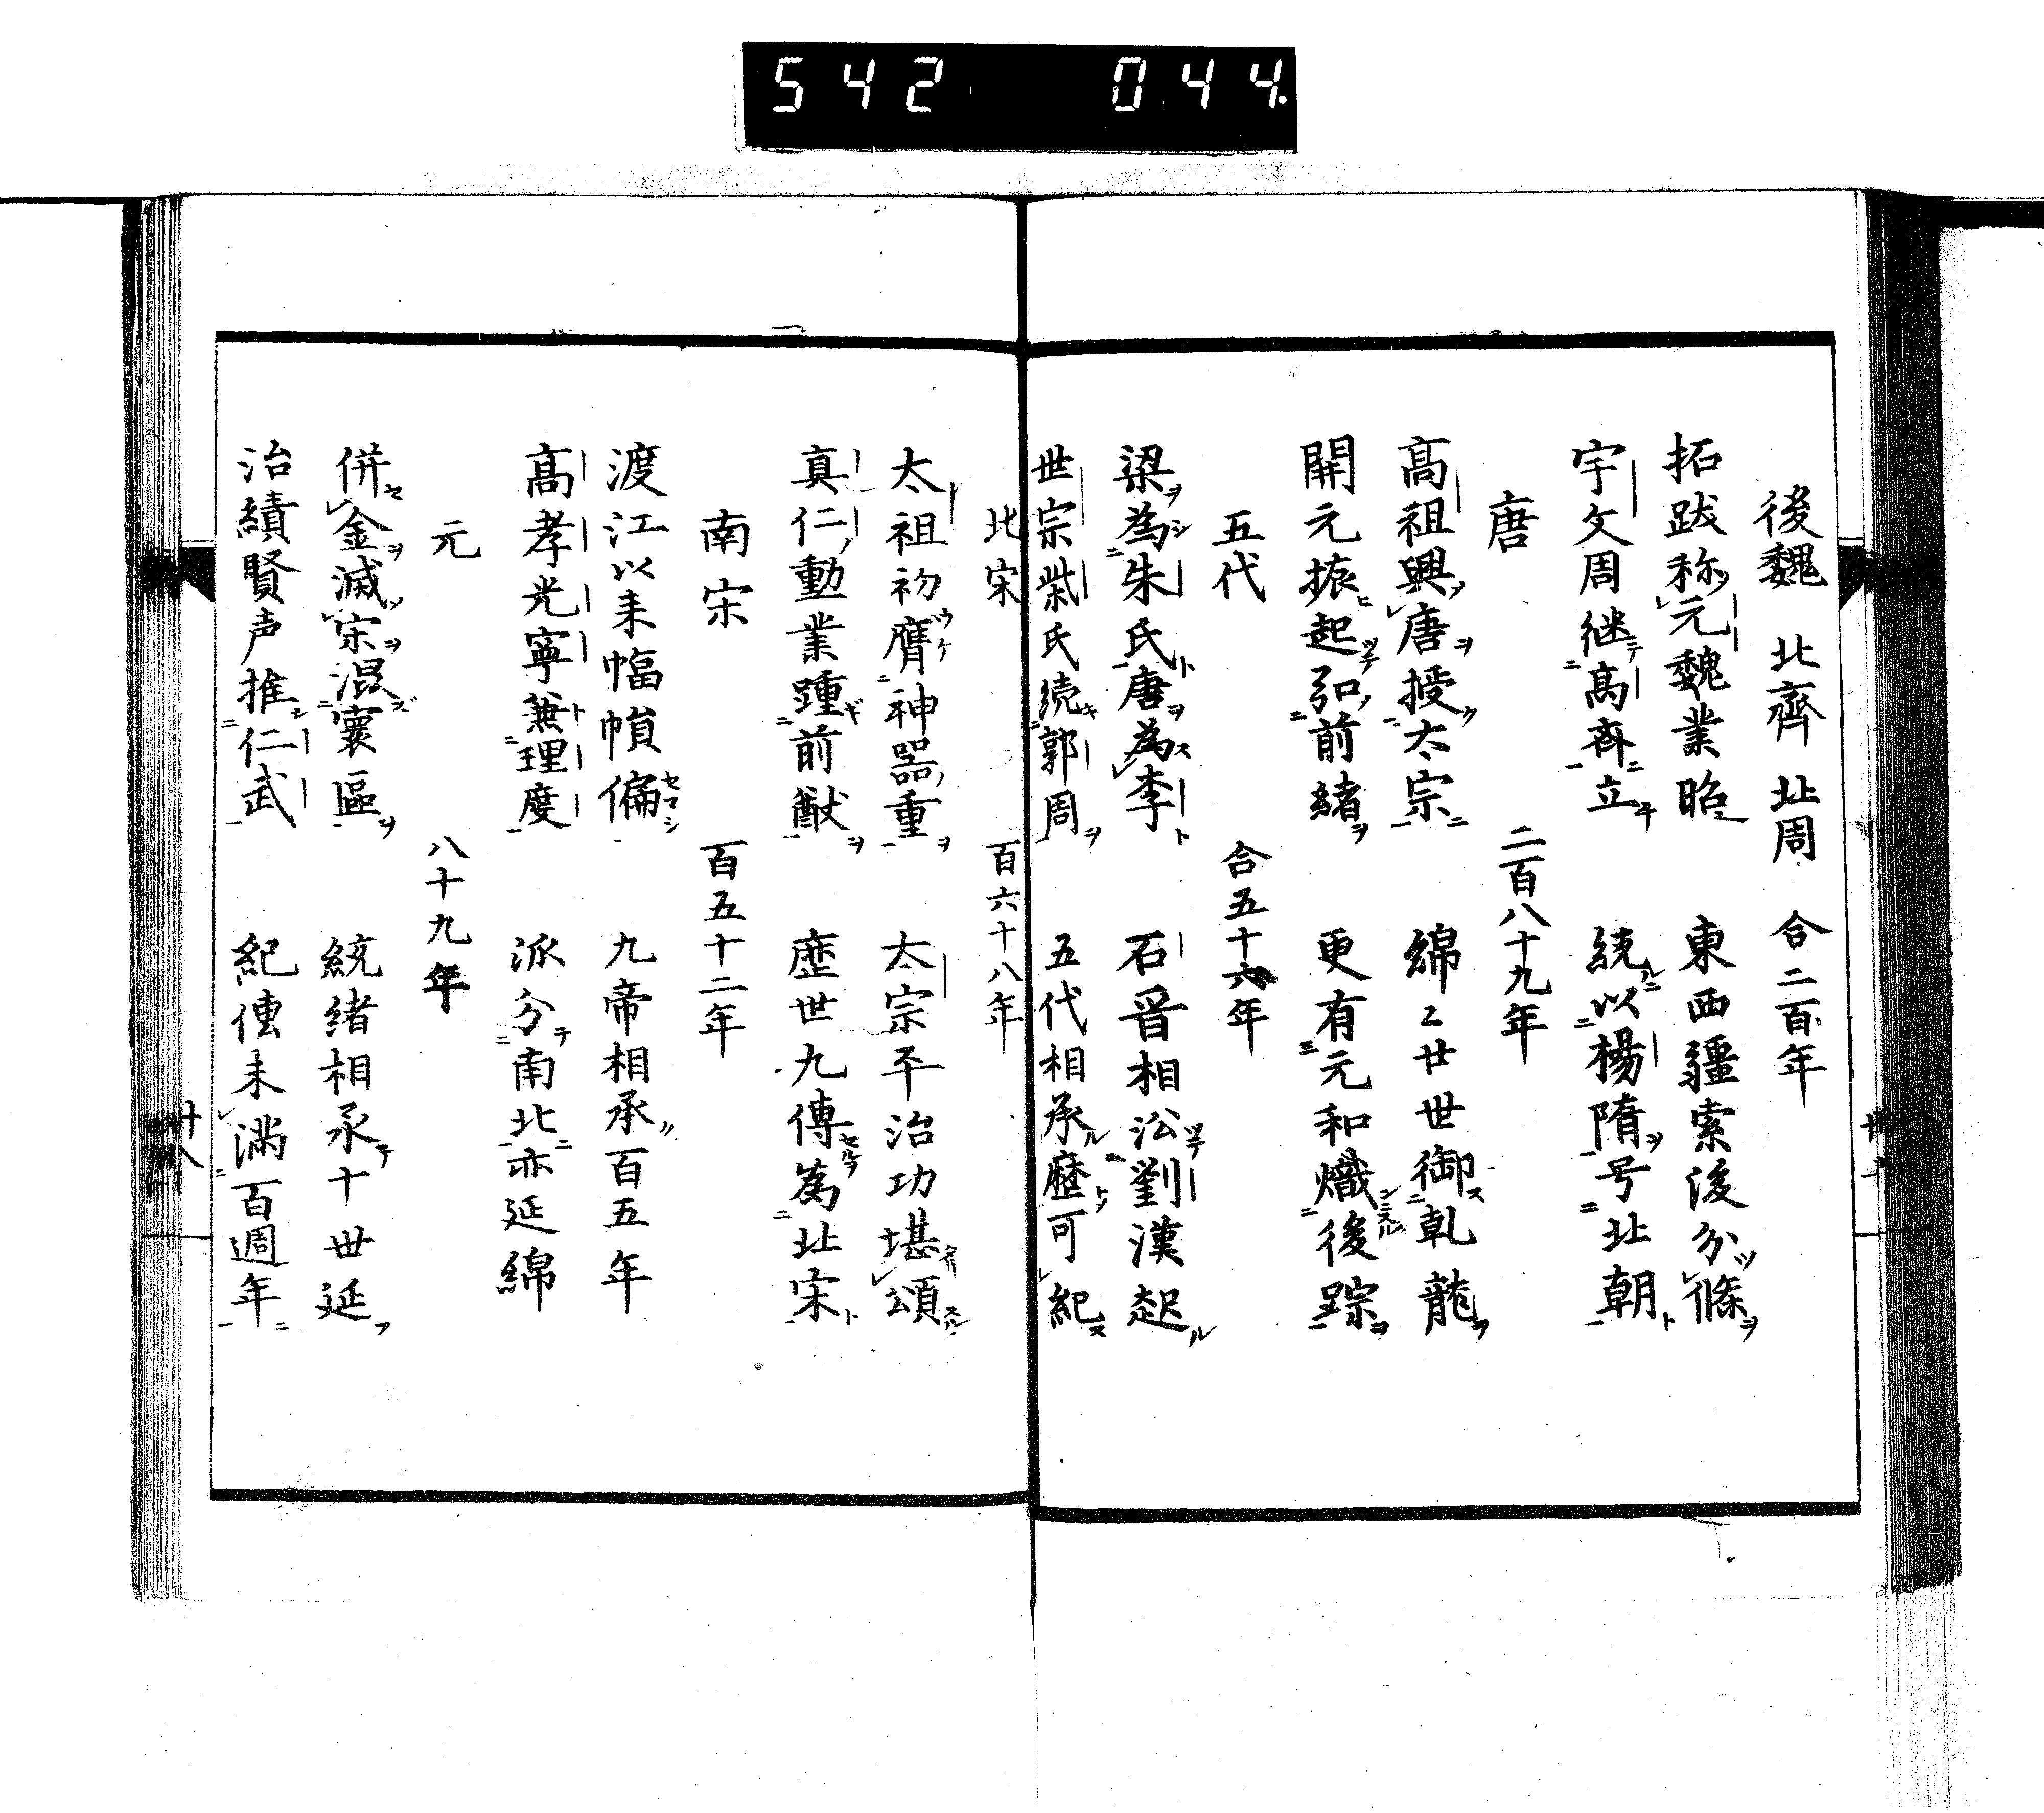 542 044.
後魏 北齊 北周 合二百年
拓跋称元魏業昭 東西疆索後分條
宇文周継高斉立 統以楊隋号北朝
唐 二百八十九年
高祖興唐授太宗 綿〻廿世御乹龍
開元振起弘前緒 更有元和熾後踪
五代 合五十六年
梁為朱氏唐為李 石晋相㳂劉漢起
世宗柴氏続郭周 五代相承歴可紀
北宋 百六十八年
太祖初膺神器重 太宗平治功堪頌
真仁勳業踵前猷 歴世九傳為北宋
南宋 百五十二年
渡江以来幅幀偏 九帝相承百五年
高孝光寧兼理度 派分南北亦延綿
元 八十九年
併金滅宋混寰區 統緒相承十世延
治績賢声推仁武 紀傳未満百週年